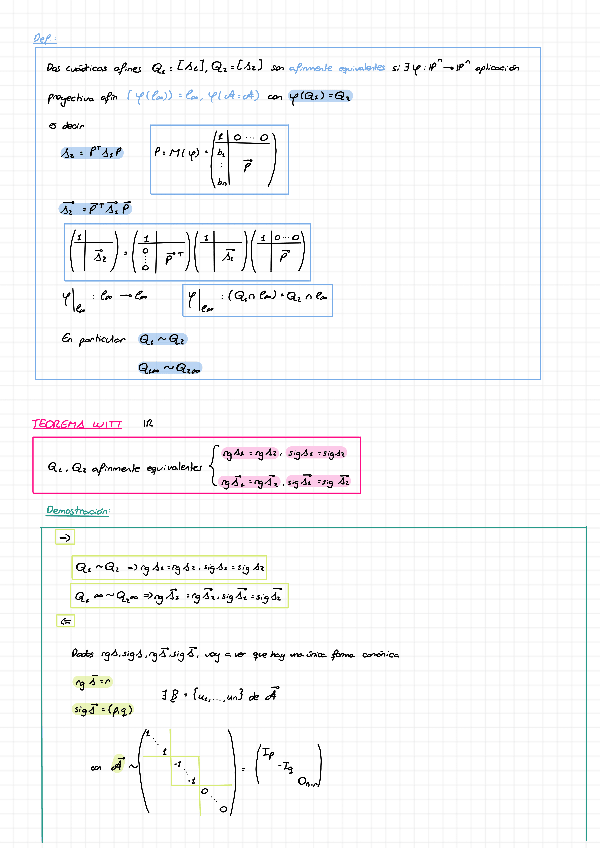 Def:
Dos cuádricas afines Q₁ = [S₁], Q₂ = [S₂] son afinmente equivalentes si ∃ φ : ℙⁿ → ℙⁿ aplicación
proyectiva afín [φ(l∞)) = l∞, φ(A = A) con φ(Q₁) = Q₂
es decir
S₂ = PᵀS₁P
P = M(φ) = (1 0 ⋯ 0
b₁
⋮ P⃗
bn)
S⃗₂ = P⃗ᵀS⃗₁P⃗
(1 S⃗₂) = (1 0 ⋮ 0 P⃗ᵀ)(1 S⃗₁)(1 0 ⋯ 0 P⃗)
φ|l∞ : l∞ → l∞ φ|l∞ : (Q₁ ∩ l∞) = Q₂ ∩ l∞
En particular Q₁ ~ Q₂
Q₁∞ ~ Q₂∞
TEOREMA WITT IR
Q₁, Q₂ afinmente equivalentes { rg S₁ = rg S₂, sig S₁ = sig S₂
rg S⃗₁ = rg S⃗₂, sig S⃗₁ = sig S⃗₂
Demostración:
→)
Q₁ ~ Q₂ → rg S₁ = rg S₂, sig S₁ = sig S₂
Q₁∞ ~ Q₂∞ ⇒ rg S⃗₁ = rg S⃗₂, sig S⃗₁ = sig S⃗₂
⇐
Dados rg S, sig S, rg S⃗, sig S⃗, voy a ver que hay una única forma canónica
rg S⃗ = r
∃ B = {u₁, ..., un} de A⃗
sig S⃗ = (p,q)
con A⃗ ~ (1 ⋱ 1 -1 ⋱ -1 0 ⋱ 0) = (Ip -Iq 0n-r)